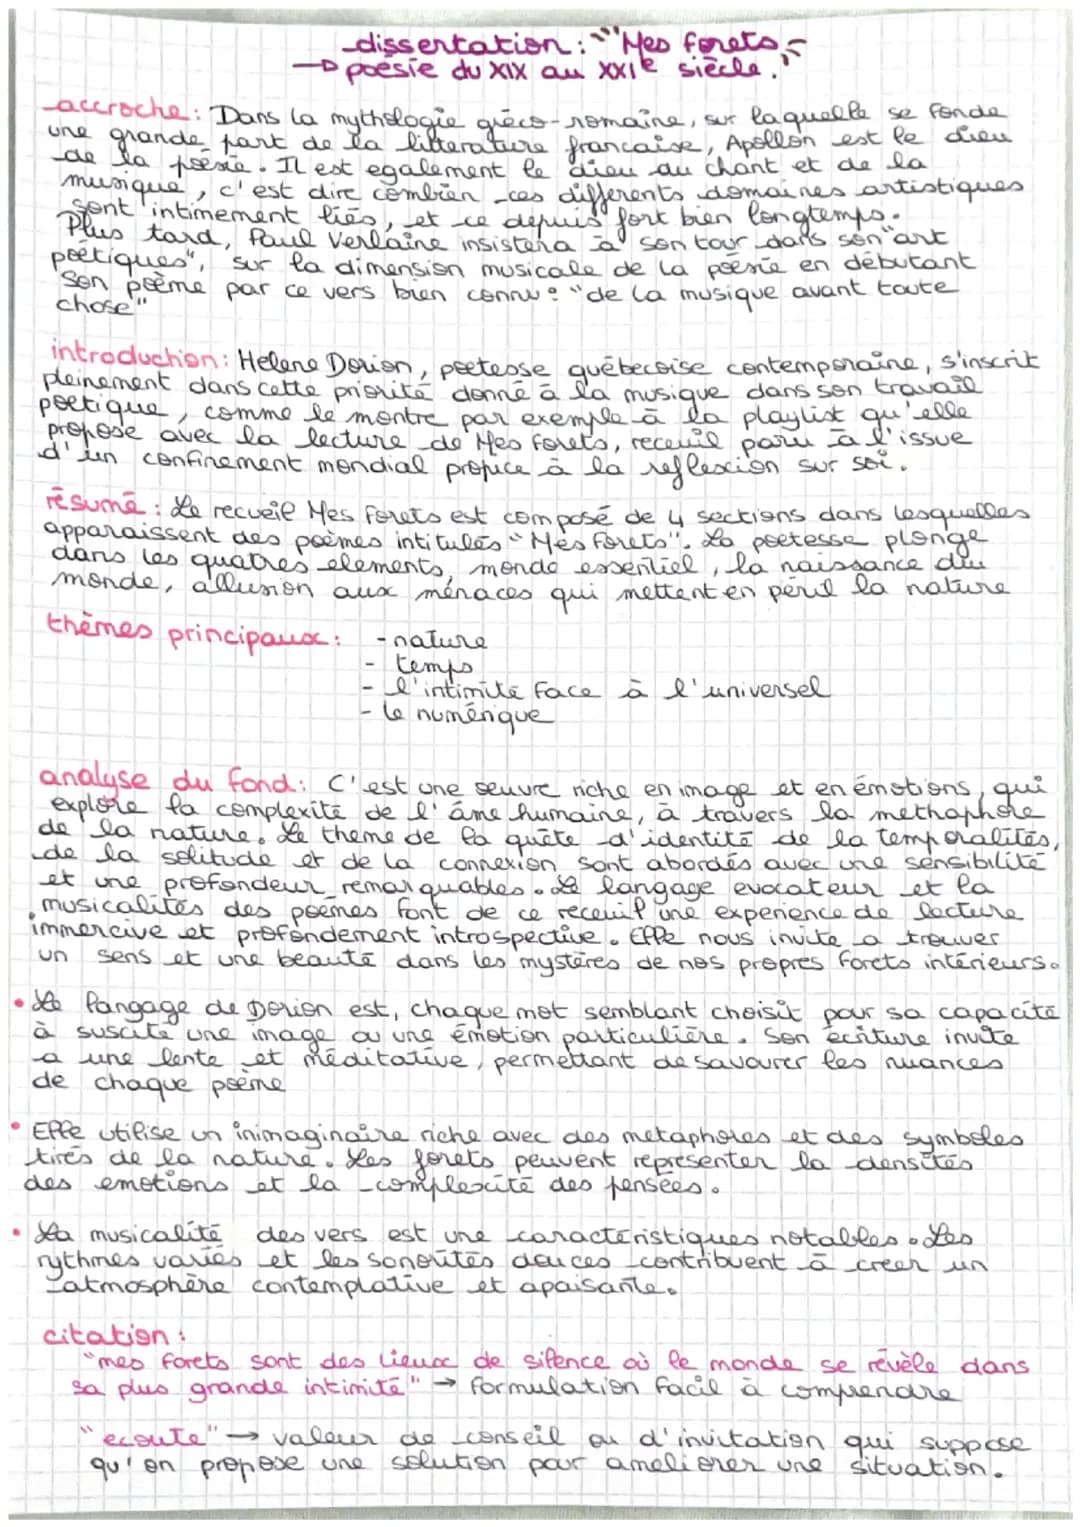 dissertation : "Mes forets
→ poésie du XIX au XXIe siècle."
accroche : Dans la mythologie gréco-romaine, sur laquelle se fonde
une grande part de la litterature francaise, Apollon est le dieu
de la poésie. Il est egalement le dieu du chant et de la
musique, c'est dire combien ces differents domaines artistiques
sont intimement liés, et ce depuis fort bien longtemps.
Plus tard, Paul Verlaine insistera à son tour dans son "art
poétiques", sur la dimension musicale de la poésie en débutant
son poème par ce vers bien connu : "de la musique avant toute
chose"
introduction : Helene Dorion, poetesse québecoise contemporaine, s'inscrit
pleinement dans cette priorité donné à la musique dans son travail
poetique, comme le montre par exemple à la playlist qu'elle
propose avec la lecture de Mes Forets, receuil paru à l'issue
d'un confinement mondial propice à la reflexion sur soi.
résumé : Le recueil Mes Forets est composé de 4 sections dans lesquelles
apparaissent des poèmes intitulés "Mes Forets". La poetesse plonge
dans les quatres elements, monde essentiel, la naissance du
monde, allusion aux menaces qui mettent en péril la nature
thèmes principaux : - nature
- temps
- l'intimité face à l'universel
- le numérique
analyse du fond : C'est une oeuvre riche en image et en émotions, qui
explore la complexité de l'âme humaine, à travers la methaphore
de la nature. Le theme de la quête d'identité de la temporalités,
de la solitude et de la connexion sont abordés avec une sensibilité
et une profondeur remarquables. Le langage evocateur et la
musicalités des poèmes font de ce receuil une experience de lecture
immercive et profondement introspective. Elle nous invite a trouver
un sens et une beauté dans les mystères de nos propres forets intérieurs.
• Le langage de Dorion est, chaque mot semblant choisit pour sa capacité
à suscité une image ou une émotion particulière. Son écriture invite
a une lente et méditative, permettant de savourer les nuances
de chaque poème
• Elle utilise un inimaginaire riche avec des metaphores et des symboles
tirés de la nature. Les forets peuvent représenter la densités
des emotions et la complexité des pensées.
• La musicalité des vers est une caractéristiques notables. Les
rythmes variés et les sonorités douces contribuent à creer un
atmosphère contemplative et apaisante.
citation :
"mes forets sont des lieux de silence où le monde se révèle dans
sa plus grande intimité" → formulation facil à comprendre
"ecoute" → valeur de conseil ou d'invitation qui suppose
qu'on propose une solution pour ameliorer une situation.